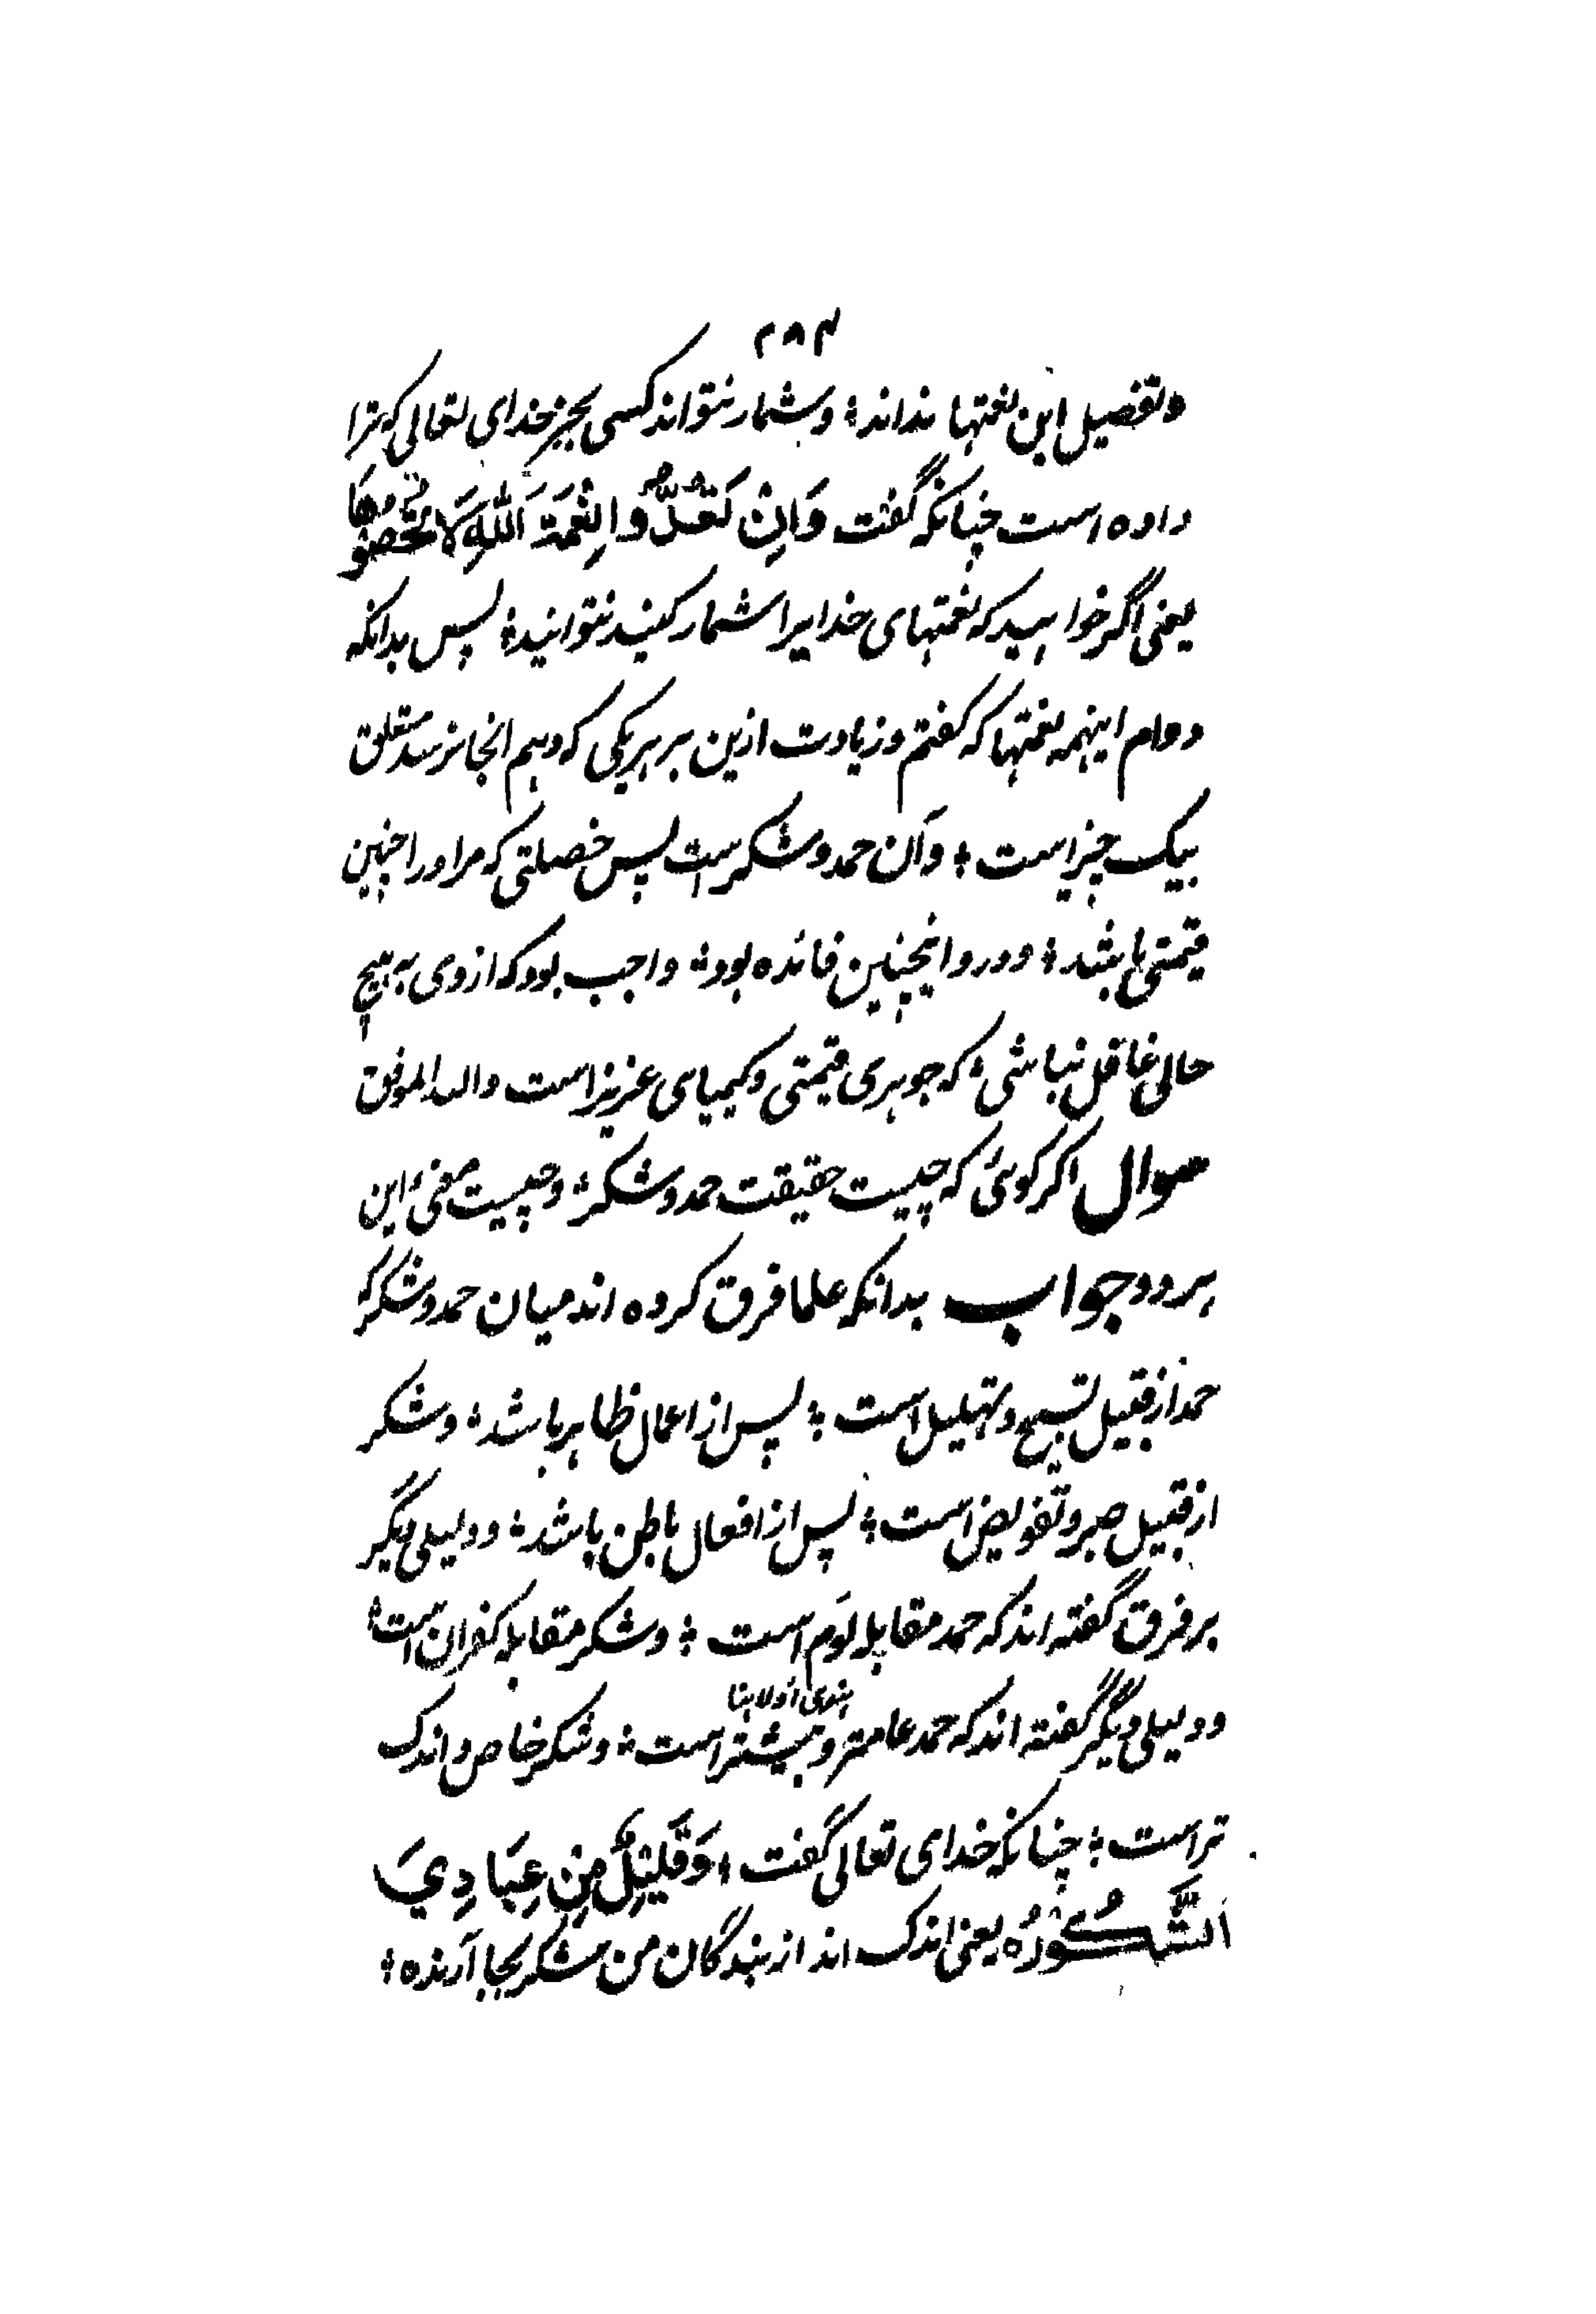 ۲۸۴
و تفصیل این نعمتها نداند ؛ و شمار نتواند کسی بجز خدای تعالی که ترا
داده است چنانکه گفت وَاِنْ تَعُدُّوا نِعْمَةَ اللّٰهِ لَا تُحْصُوْهَا
یعنی اگر خواهید که نعمتهای خدایرا شمار کنید نتوانید ؛ پس بدانکه
دوام اینهمه نعمتها که گفتم و زیادت ازین بر هریکی که وهم انجا نرسد متعلق
بیک چیز است ؛ و آن حمد و شکر است پس خصلتی که مر او را چنین
قیمتی باشد ؛ و درو اینچنین فائده بود ؛ واجب بود که از وی به هیچ
حالی غافل نباشی ؛ که جوهری قیمتی و کیمیای عزیز است والله الموفق
سوال اگر گوئی که چیست حقیقت حمد و شکر ؛ و چیست معنیٔ این
هر دو جواب بدانکه علما فرق کرده اند میان حمد و شکر که
حمد از قبیل تسبیح و تهلیل است ؛ پس از اعمال ظاهر باشد ؛ و شکر
از قبیل صبر و تفویض است ؛ پس از افعال باطن باشد ؛ و دلیلی دیگر
بر فرق گفته اند که حمد مقابله لَوم است ؛ و شکر مقابله کفران است ؛
و دلیلی دیگر گفته اند که حمد عامتر و بیشتر است ؛ و شکر خاص و اندک
تر است ؛ چنانکه خدای تعالی گفت ؛ وَقَلِیْلٌ مِنْ عِبَادِيَ
الشَّکُوْرُهُ یعنی اندک اند از بندگان من شکر بجا آرنده ؛